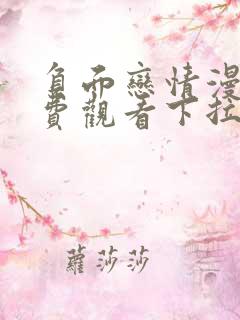 負而戀情漫
費觀看下拉
蘿莎莎